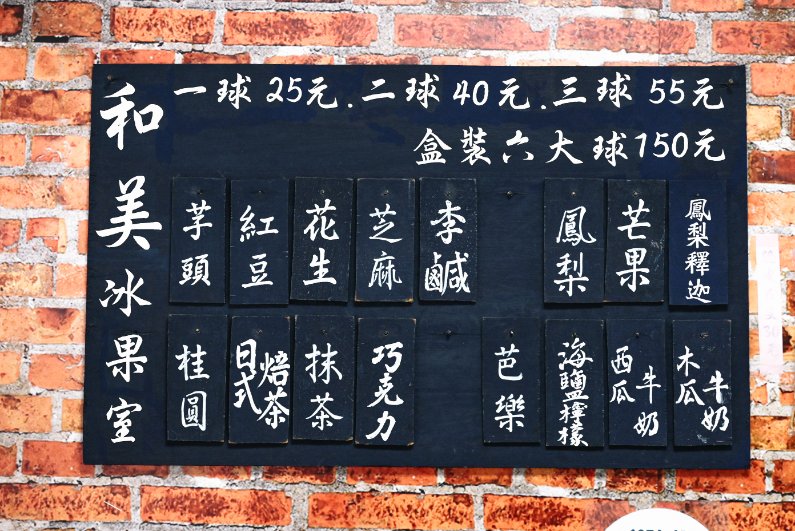 和美冰果室
一球25元.二球40元.三球55元
盒裝六大球150元
芋頭
紅豆
花生
芝麻
李鹹
鳳梨
芒果
鳳梨釋迦
桂圓
日式焙茶
抹茶
巧克力
芭樂
海鹽檸檬
西瓜牛奶
木瓜牛奶